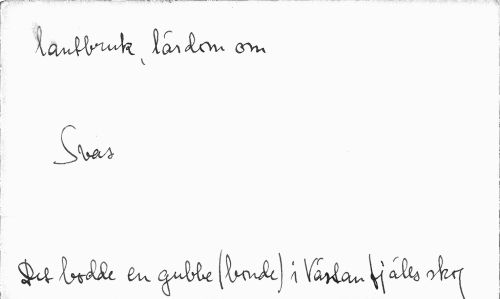 lantbruk, lärdom om
Svas
Det bodde en gubbe (bonde) i Västanfjäles skog